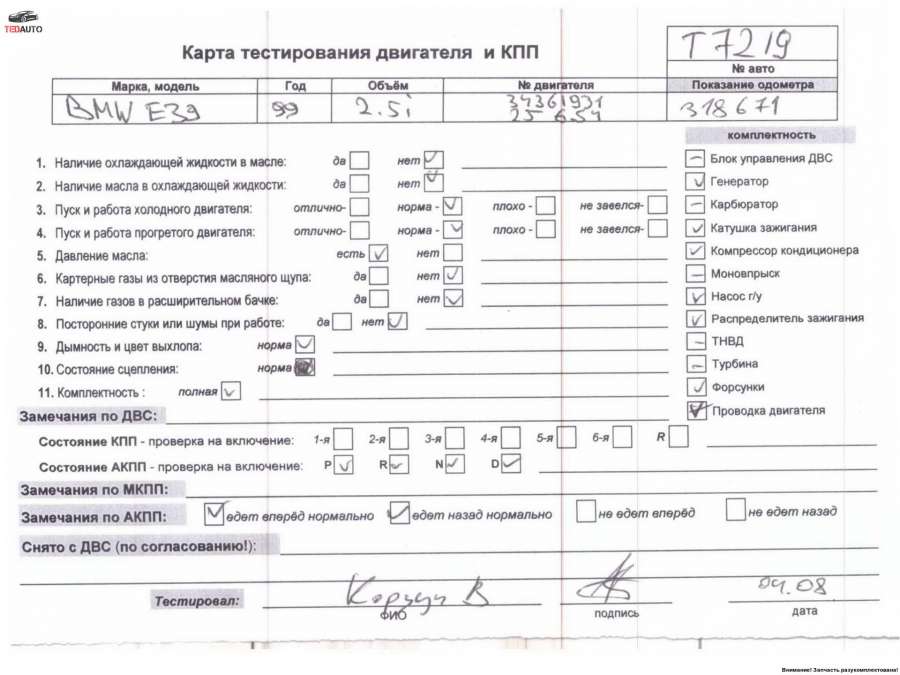 TEDAUTO
Карта тестирования двигателя и КПП
T7219
№ авто
Марка, модель Год Объём № двигателя Показание одометра
BMW E39 99 2.5i 34361931 318671
25 6S4
комплектность
1. Наличие охлаждающей жидкости в масле: да нет
2. Наличие масла в охлаждающей жидкости: да нет
3. Пуск и работа холодного двигателя: отлично- норма - плохо - не завелся-
4. Пуск и работа прогретого двигателя: отлично- норма - плохо - не завелся-
5. Давление масла: есть нет
6. Картерные газы из отверстия масляного щупа: да нет
7. Наличие газов в расширительном бачке: да нет
8. Посторонние стуки или шумы при работе: да нет
9. Дымность и цвет выхлопа: норма
10. Состояние сцепления: норма
11. Комплектность : полная
Блок управления ДВС
Генератор
Карбюратор
Катушка зажигания
Компрессор кондиционера
Моновпрыск
Насос г/у
Распределитель зажигания
ТНВД
Турбина
Форсунки
Проводка двигателя
Замечания по ДВС:
Состояние КПП - проверка на включение: 1-я 2-я 3-я 4-я 5-я 6-я R
Состояние АКПП - проверка на включение: P R N D
Замечания по МКПП:
Замечания по АКПП: едет вперёд нормально едет назад нормально не едет вперёд не едет назад
Снято с ДВС (по согласованию!):
Тестировал: В 04.08
ФИО подпись дата
Внимание! Запчасть разукомплектована!